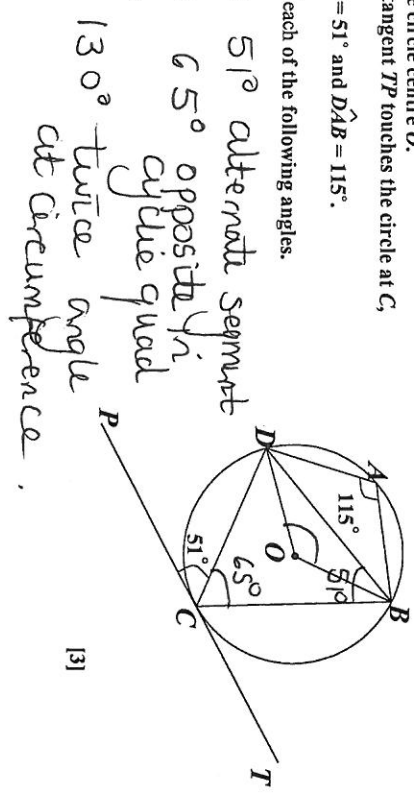 circle centre O.
tangent TP touches the circle at C,
= 51° and DÂB = 115°.
each of the following angles.
51° alternate segment
65° opposite in
cyclic quad
130° twice angle
at circumference.
A
B
115°
D
O
51°
65°
51°
C
P
T
[3]